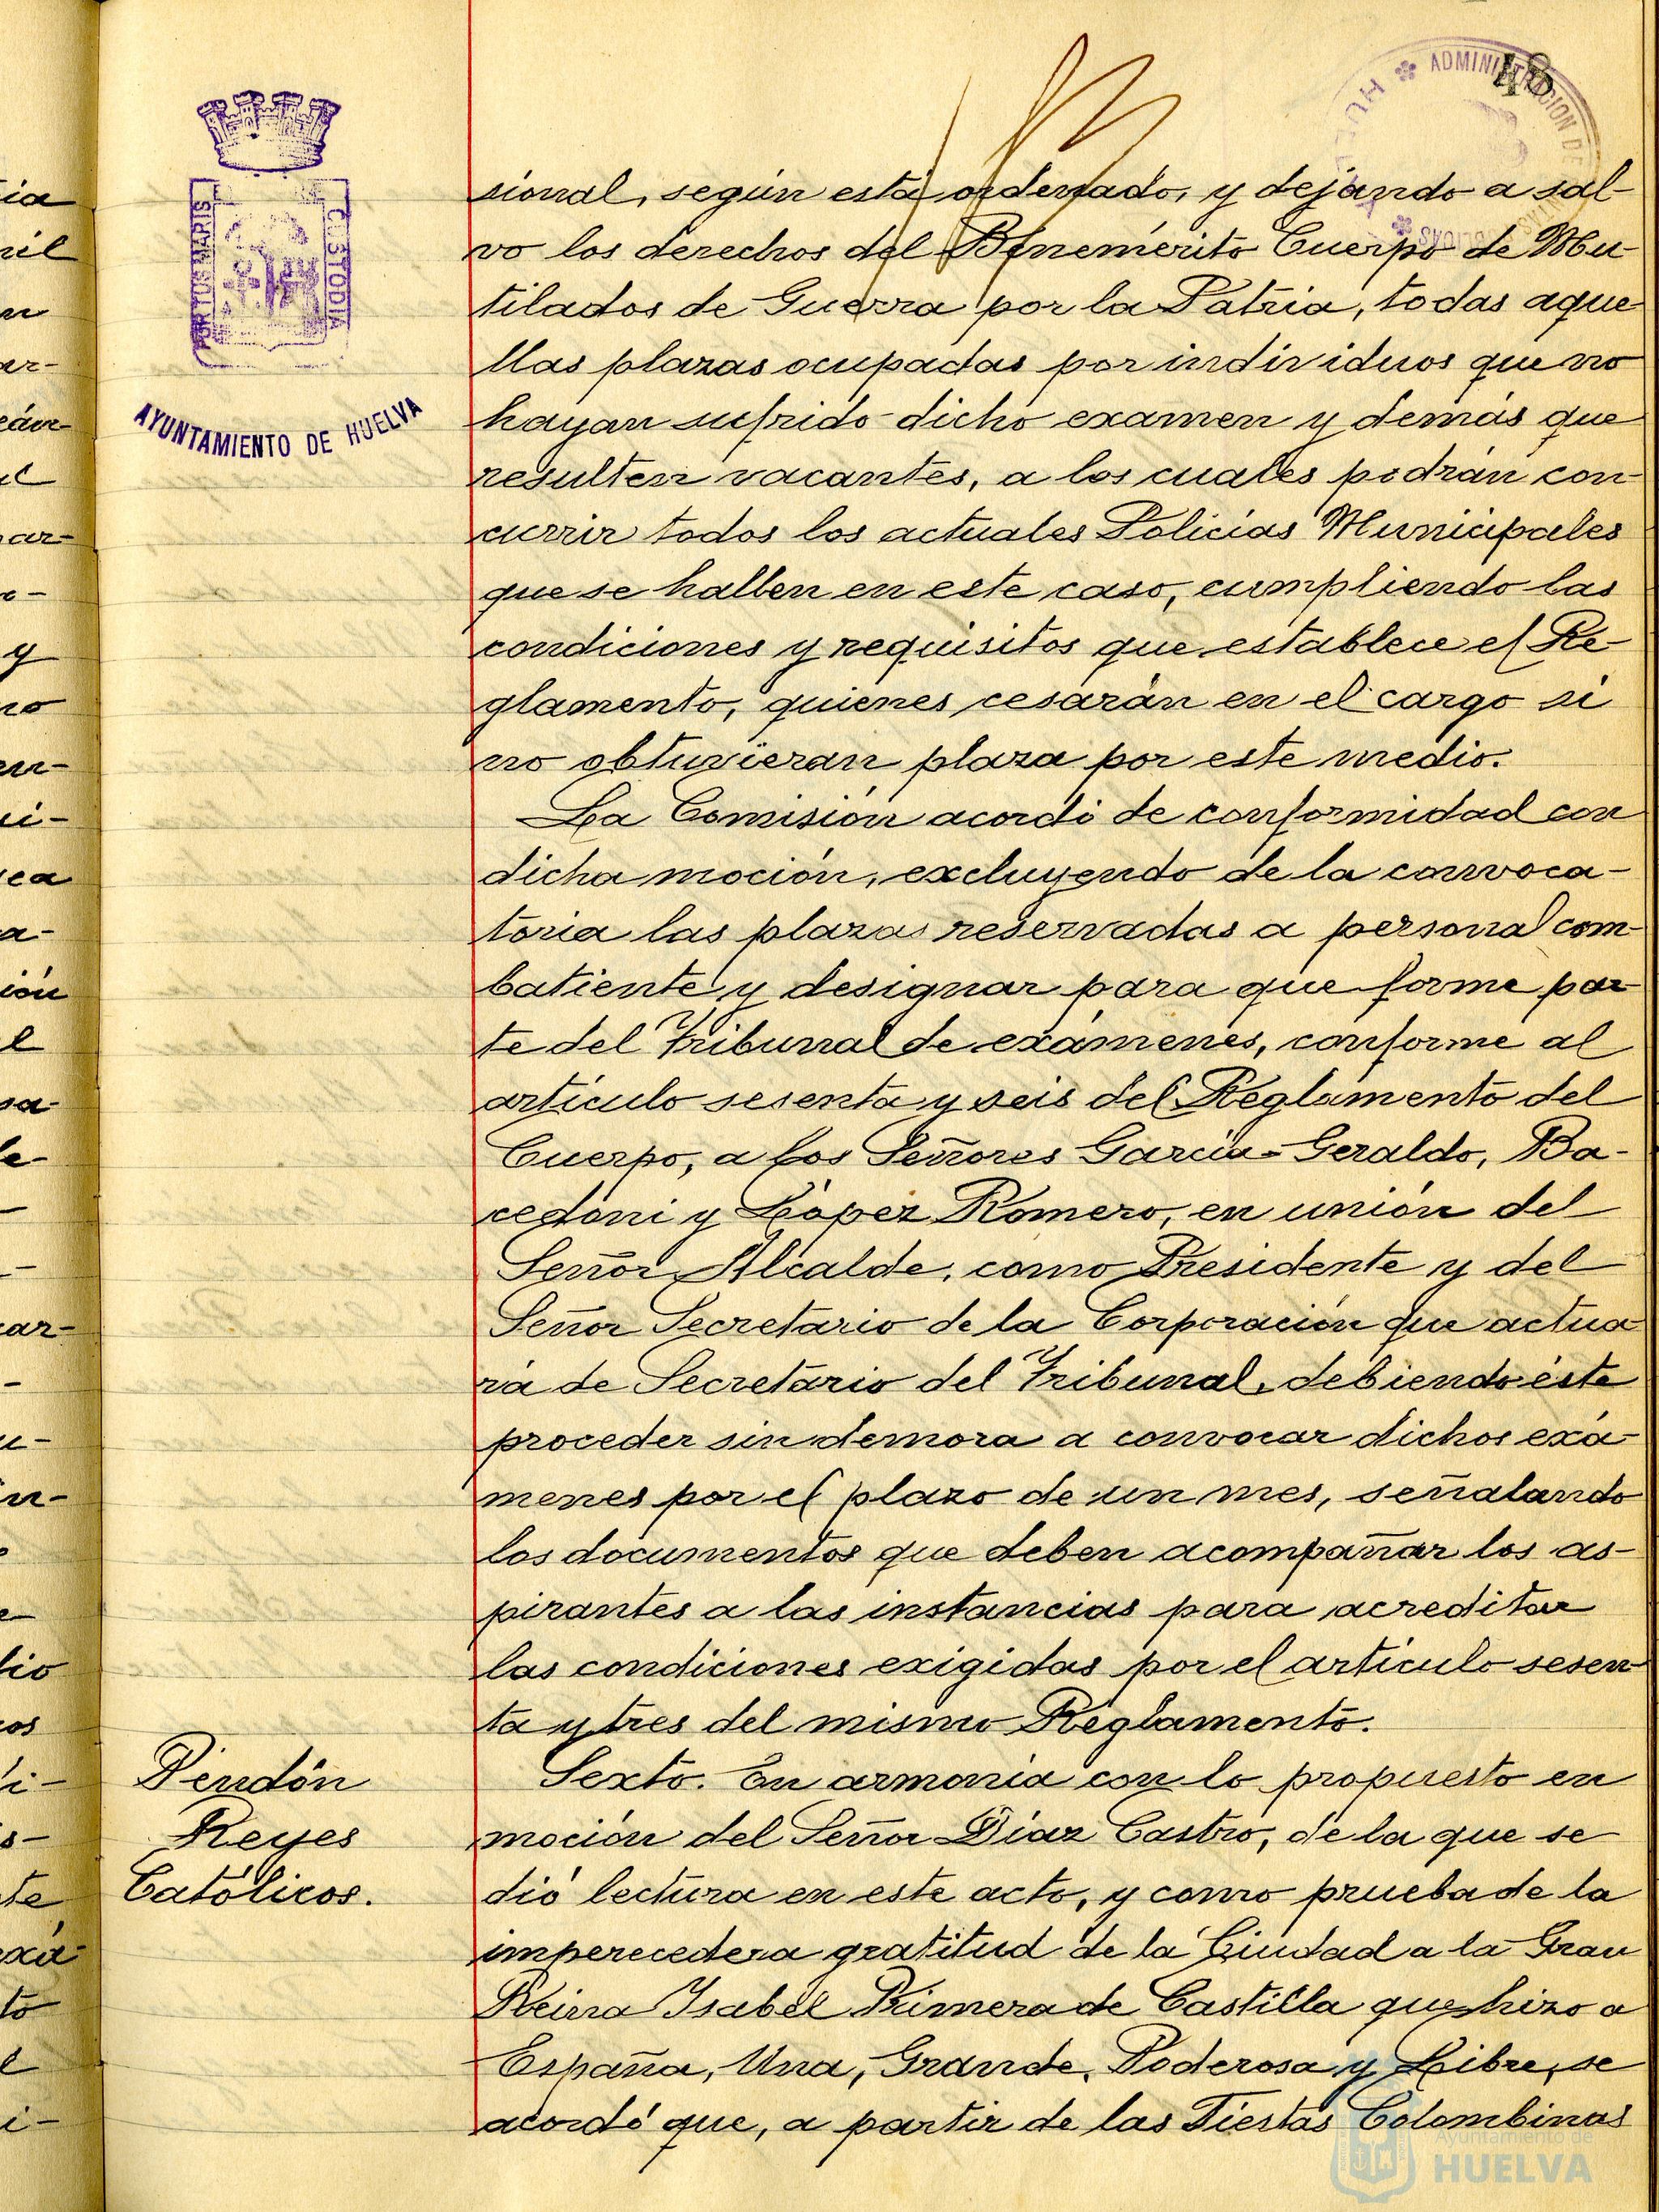 48
ADMINISTRACION DE
PORTUS MARIS
CUSTODIA
AYUNTAMIENTO DE HUELVA
sional, según está ordenado, y dejando a sal-
vo los derechos del Benemérito Cuerpo de Mu-
tilados de Guerra por la Patria, todas aque-
llas plazas ocupadas por individuos que no
hayan sufrido dicho examen y demás que
resulten vacantes, a los cuales podrán con-
currir todos los actuales Policías Municipales
que se hallen en este caso, cumpliendo las
condiciones y requisitos que establece el Re-
glamento, quienes cesarán en el cargo si
no obtuvieran plaza por este medio.
La Comisión acordó de conformidad con
dicha moción, excluyendo de la convoca-
toria las plazas reservadas a personal com-
batiente y designar para que forme par-
te del Tribunal de exámenes, conforme al
artículo sesenta y seis del Reglamento del
Cuerpo, a los Señores García-Geraldo, Ba-
cedoni y López Romero, en unión del
Señor Alcalde, como Presidente y del
Señor Secretario de la Corporación que actua-
rá de Secretario del Tribunal, debiendo éste
proceder sin demora a convocar dichos exá-
menes por el plazo de un mes, señalando
los documentos que deben acompañar los as-
pirantes a las instancias para acreditar
las condiciones exigidas por el artículo sesen-
ta y tres del mismo Reglamento.
Pendón
Reyes
Católicos.
Sexto. En armonía con lo propuesto en
moción del Señor Díaz Castro, de la que se
dió lectura en este acto, y como prueba de la
imperecedera gratitud de la Ciudad a la Gran
Reina Isabel Primera de Castilla que hizo a
España, Una, Grande, Poderosa y Libre, se
acordó que, a partir de las Fiestas Colombinas
Ayuntamiento de
HUELVA